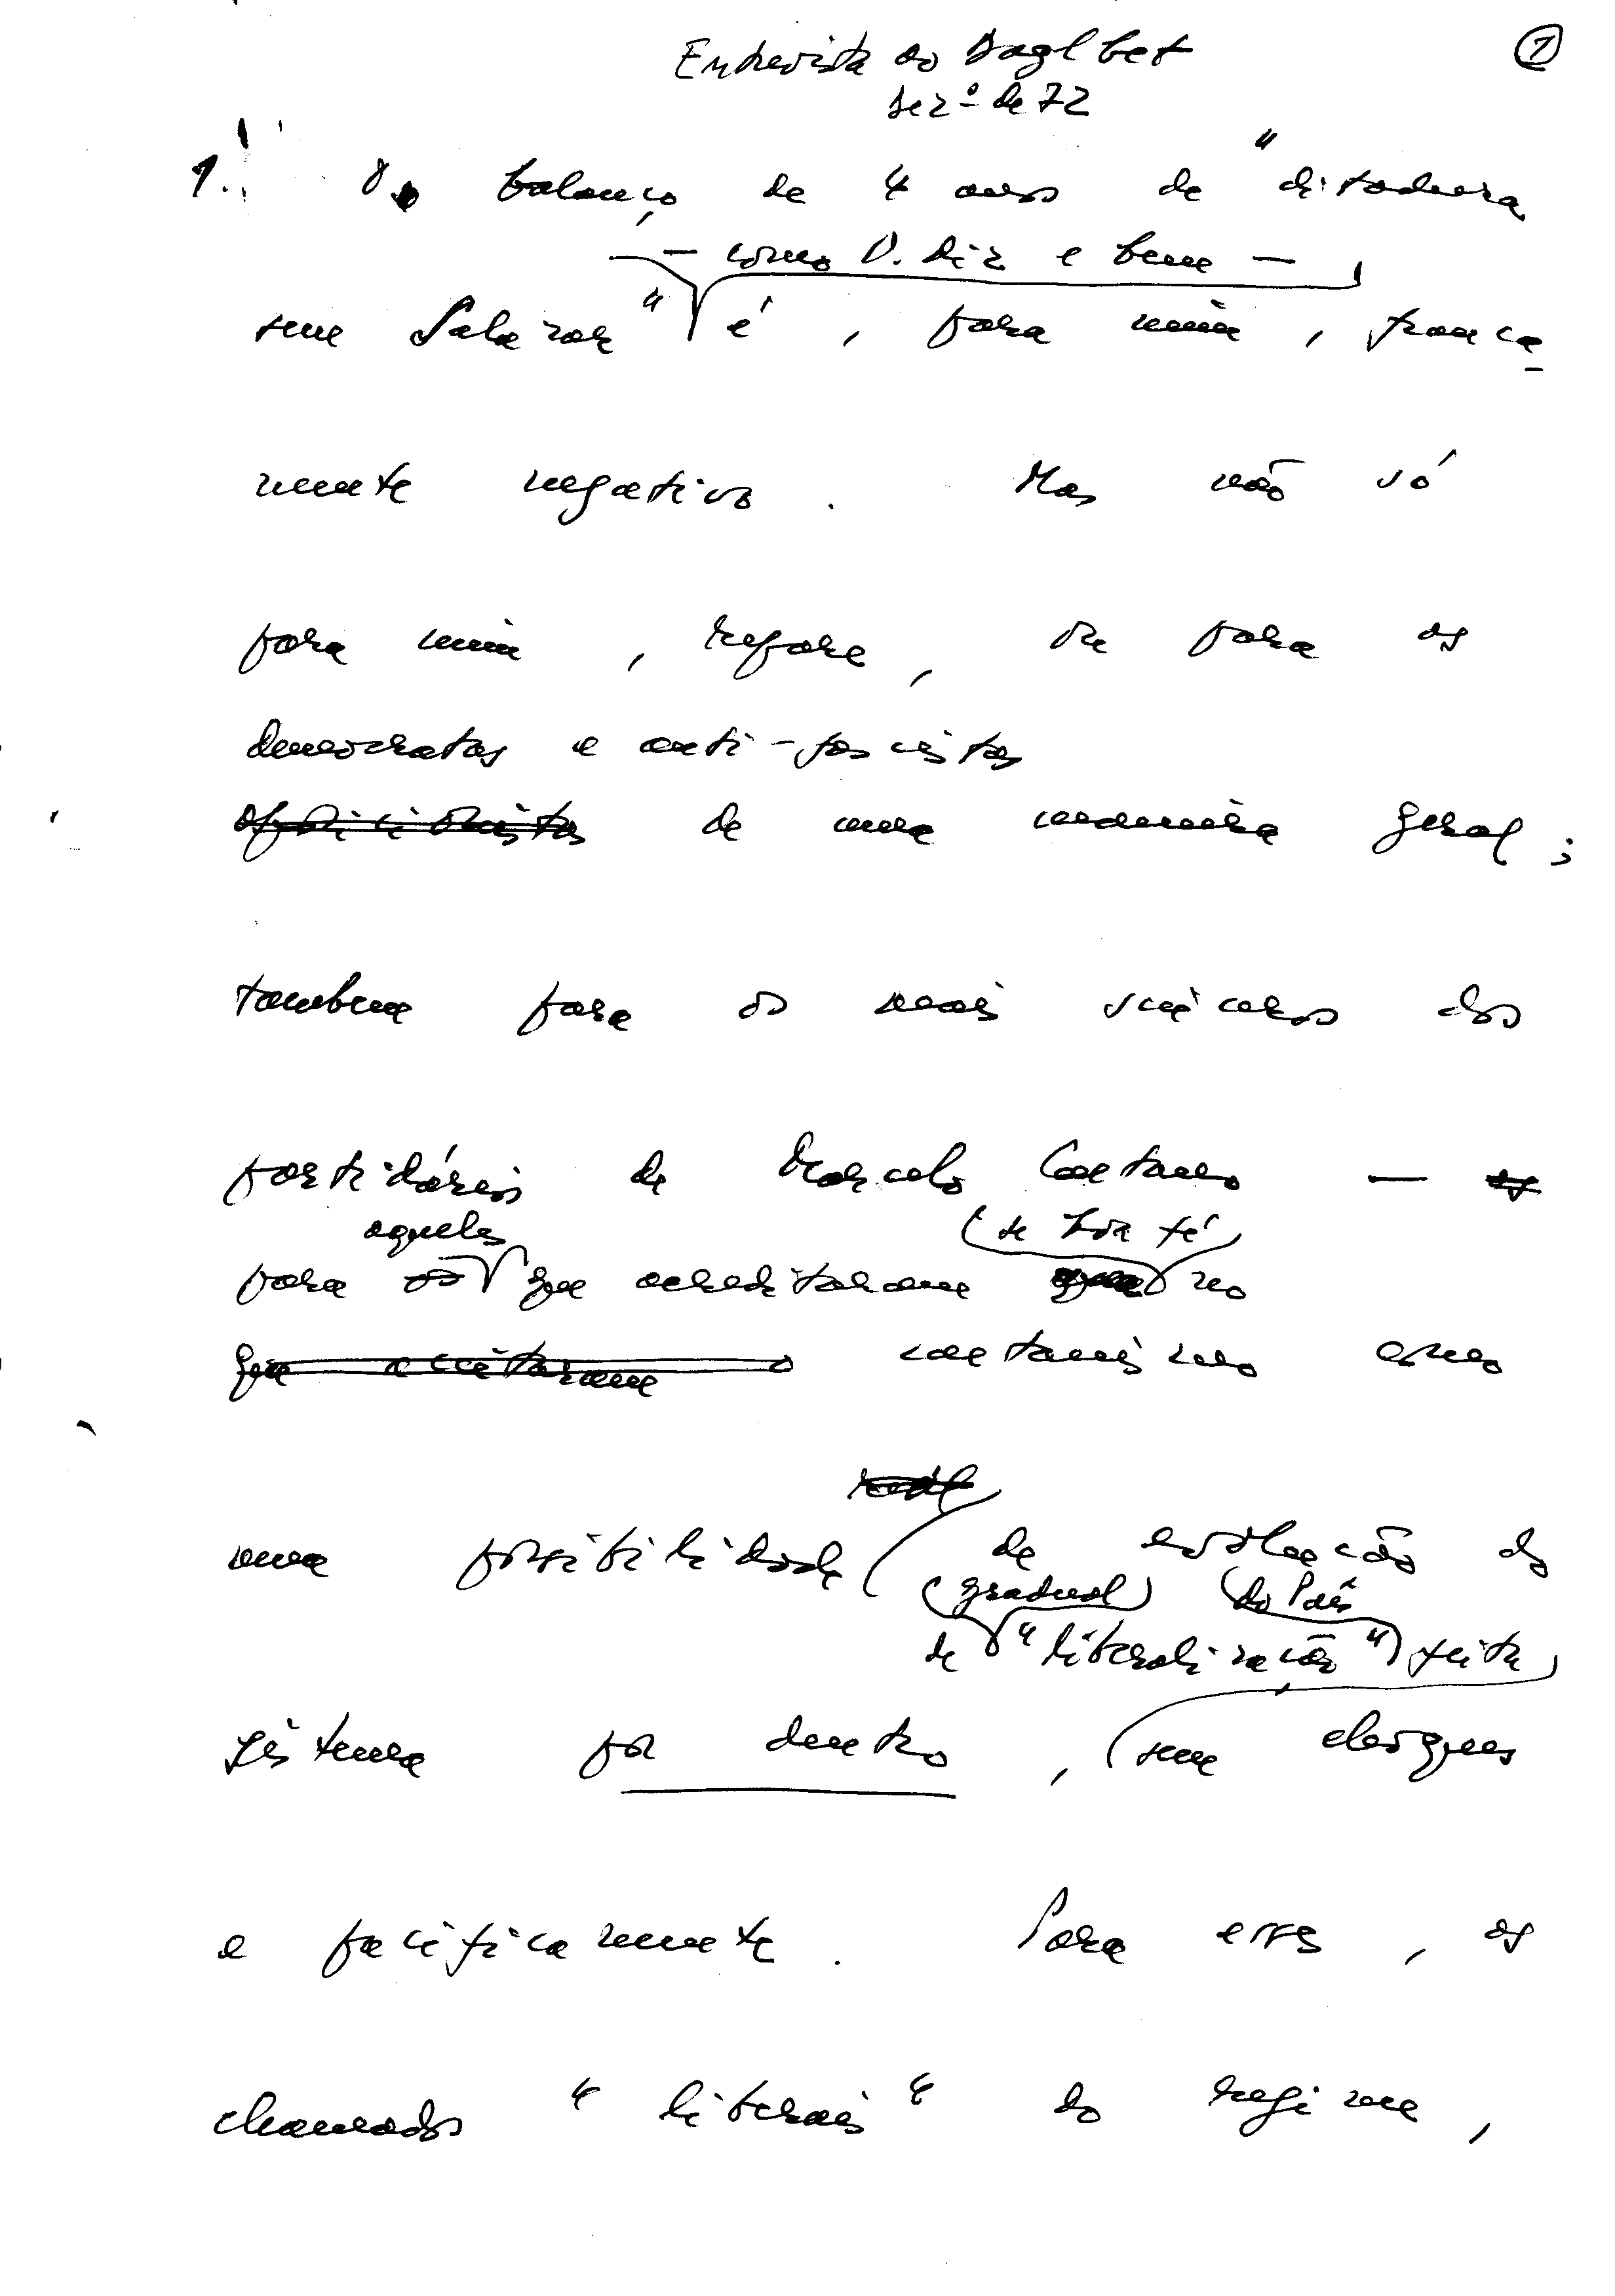 Entrevista ao Dagbet
Dez.º de 72
1
1. O balanço de 4 anos de "ditadura
— como V. diz e bem —
sem Salazar" é, para mim, franca
mente negativo. Mas não só
para mim, repare, ou para os
democratas e anti-fascistas
oposicionistas de uma maneira geral;
também para os mais sinceros dos
partidários de Marcelo Caetano — os
aqueles (de boa fé
para os que acreditaram que no
que aceitaram o caetanismo como
real
uma possibilidade de evolução do
(gradual) (do País
de "liberalização" feita
sistema por dentro, sem choques
e pacificamente. Para esses, os
chamados "liberais" do regime,